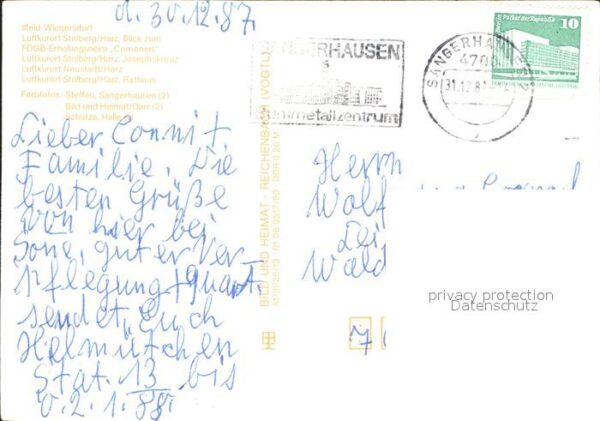 d. 30.12.87
Ilfeld-Wiegersdorf
Luftkurort Stolberg/Harz, Blick zum
FDGB-Erholungsheim „Comenius"
Luftkurort Stolberg/Harz, Josephskreuz
Luftkurort Neustadt/Harz
Luftkurort Stolberg/Harz, Rathaus
Farbfotos: Steffen, Sangerhausen (2)
Bild und Heimat/Darr (2)
Schulze, Halle (2)
Lieber Connit
Familie. Die
besten Grüße
von hier bei
Sone, guter Ver-
pflegung + Quart.
sendet Euch
Helmütchen
Stat. 13 bis
d. 2.1.88.
BILD UND HEIMAT · REICHENBACH (VOGTL
SANGERHAUSEN
mmetallzentrum
SANGERHAUSEN
4700
31.12.8
Palast der Republik
10
Herrn
Wolf
Lei
Wald
7
privacy protection
Datenschutz